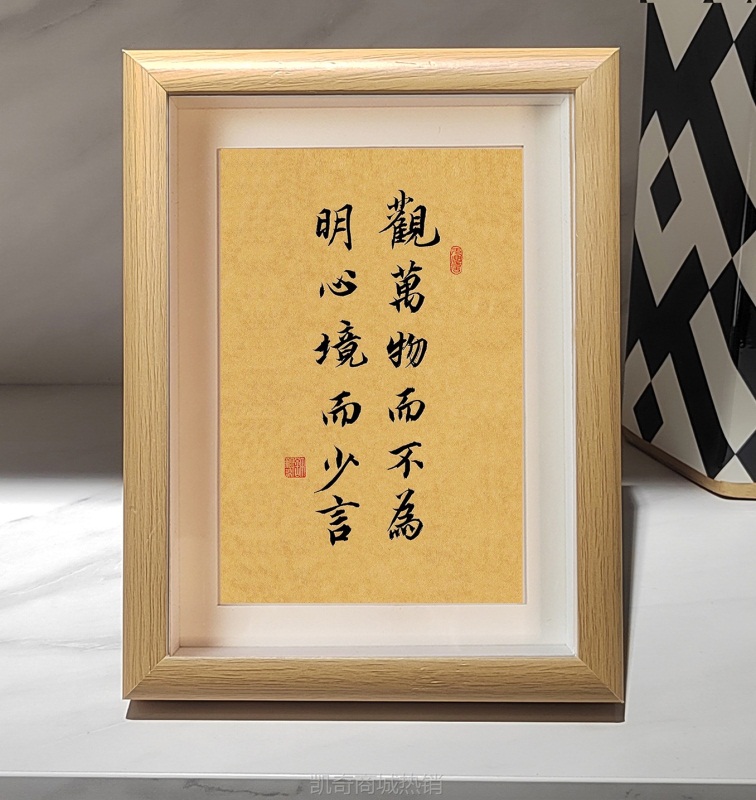 觀萬物而不為
明心境而少言
凯奇商城热销